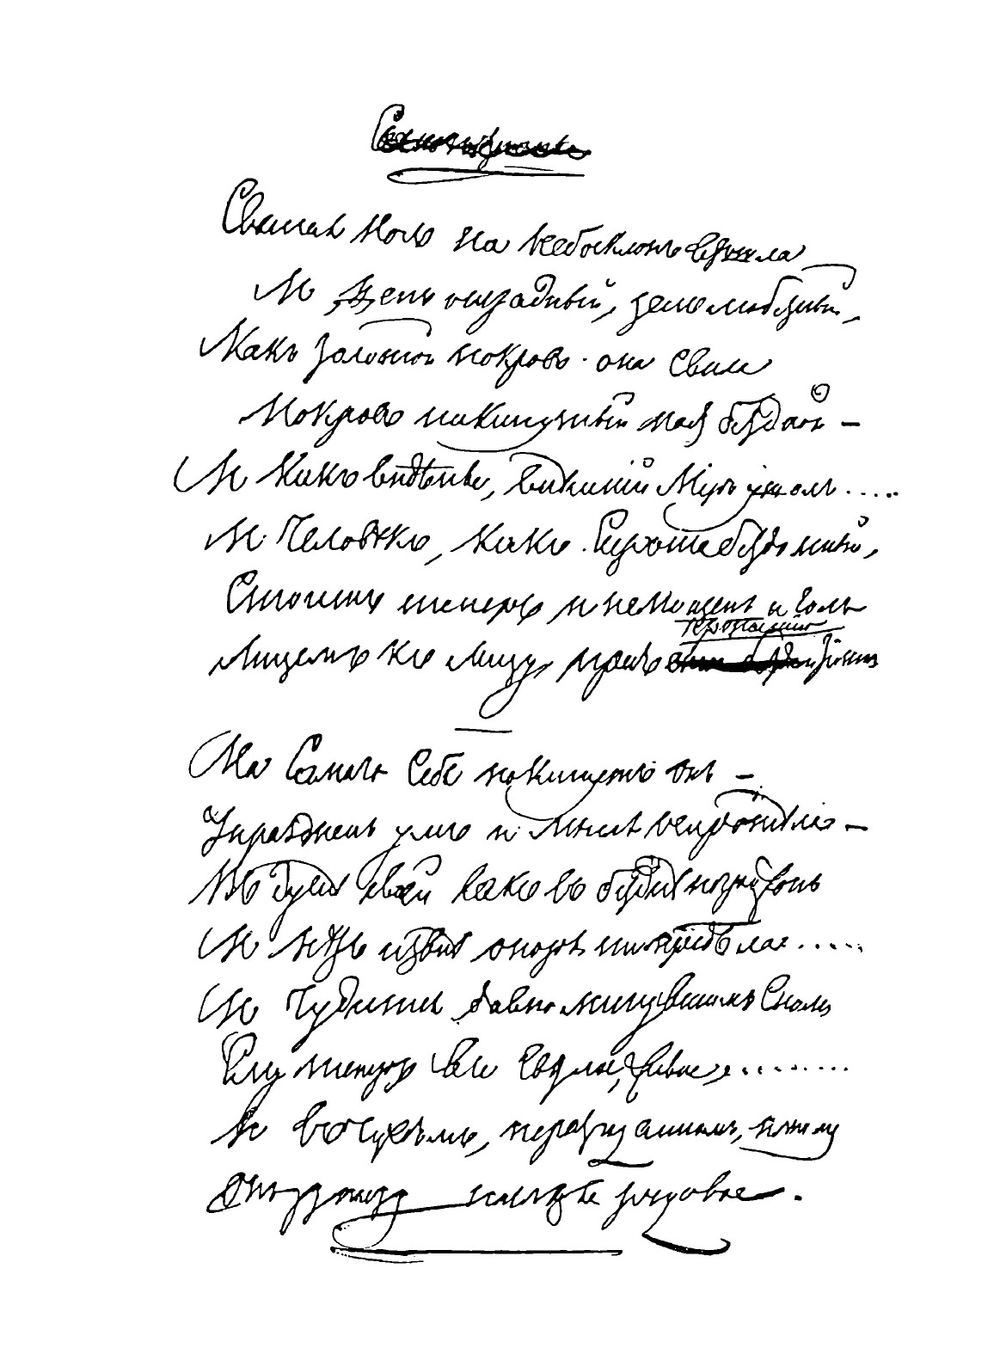 Святая ночь на небосклонъ взошла
И день отрадный, день любезный,
Какъ золотой покровъ - она свила
Покровъ накинутый надъ бездной –
И какъ видѣнье, внѣшній міръ ушелъ.....
И человѣкъ, какъ сирота бездомный,
Стоитъ теперь и немощенъ и голъ
пропастію
Лицемъ къ лицу, предъ темной
На самаго себя покинутъ онъ –
Упраздненъ умъ и мысль осиротѣла –
Въ душѣ своей какъ въ безднѣ погруженъ
И нѣтъ извнѣ опоры ни предѣла.....
И чудится давно минувшимъ сномъ
Ему теперь все свѣтлое, живое........
И въ чуждомъ, неразгаданномъ, ночномъ
Онъ узнаетъ наслѣдье родовое.